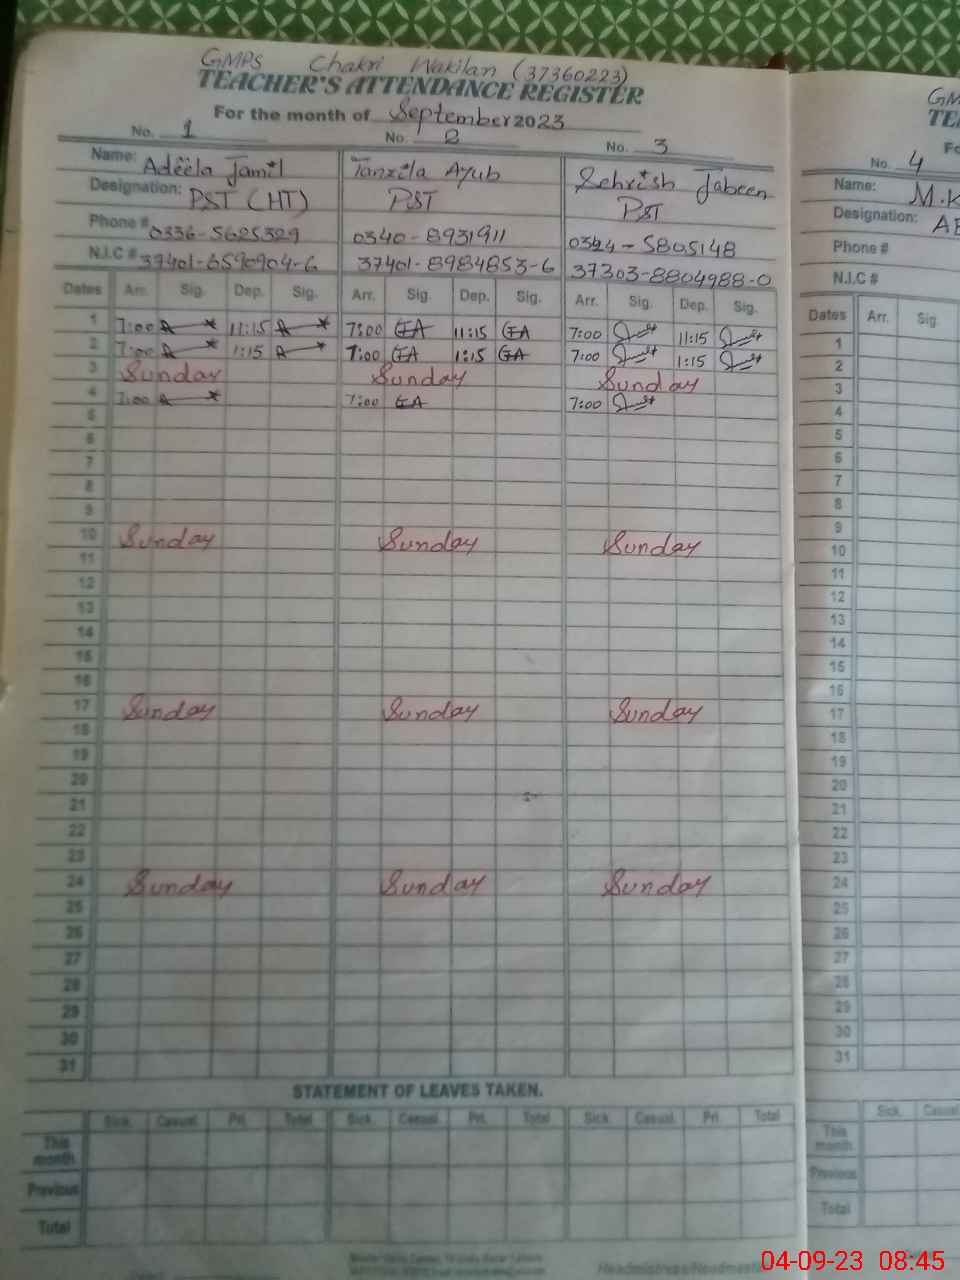 GMPS Chakri Wakilan (37360223)
TEACHER'S ATTENDANCE REGISTER
For the month of September 2023
No. 1 No. 2 No. 3
Name: Adeela Jamil Tanzila Ayub Sehrish Jabeen
Designation: PST (HT) PST PST
Phone # 0336-5625329 0340-8931911 0344-5805148
N.I.C # 37401-6590904-6 37401-8984853-6 37303-8804988-0
Dates Arr. Sig. Dep. Sig. Arr. Sig. Dep. Sig. Arr. Sig. Dep. Sig.
1 7:00 11:15 7:00 11:15 7:00 11:15
2 7:00 1:15 7:00 1:15 7:00 1:15
3 Sunday Sunday Sunday
4 7:00 7:00 7:00
5
6
7
8
9
10 Sunday Sunday Sunday
11
12
13
14
15
16
17 Sunday Sunday Sunday
18
19
20
21
22
23
24 Sunday Sunday Sunday
25
26
27
28
29
30
31
STATEMENT OF LEAVES TAKEN.
Sick. Casual. Pri. Total Sick. Casual. Pri. Total Sick. Casual. Pri. Total
This month
Previous
Total
GM
TE
Fo
No. 4
Name: M.K
Designation:
Phone #
N.I.C #
Dates Arr. Sig.
1
2
3
4
5
6
7
8
9
10
11
12
13
14
15
16
17
18
19
20
21
22
23
24
25
26
27
28
29
30
31
Sick. Casual
This month
Previous
Total
04-09-23 08:45